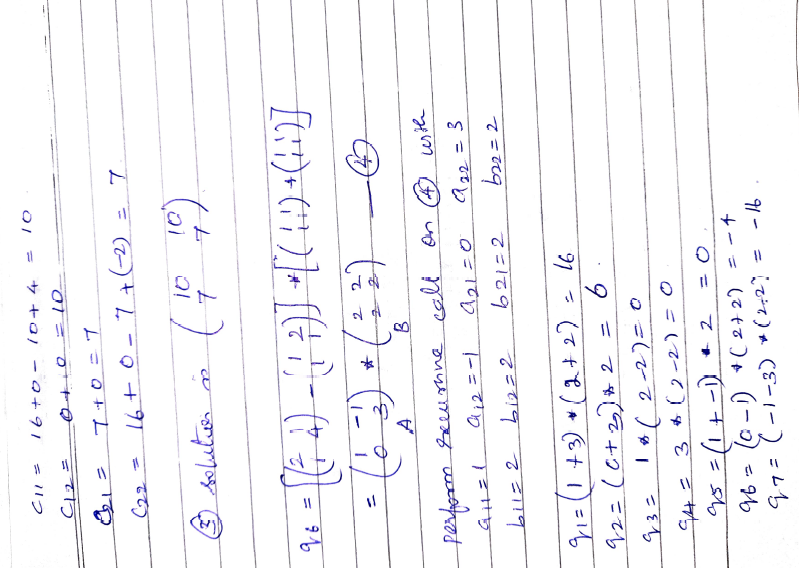 C11 = 16+0-10+4 = 10
C12 = 0+0 = 10
C21 = 7+0 = 7
C22 = 16+0-7+(-2) = 7
③ solution is ( 10 10
7 7 )
q6 = [( 2 1
1 4 ) - ( 1 2
1 1 )] * [( 1 1
1 1 ) + ( 1 1
1 1 )]
= ( 1 -1
0 3 ) * ( 2 2
2 2 ) — ④
A B
perform recursive call on ④ with
a11=1 a12=-1 a21=0 a22=3
b11=2 b12=2 b21=2 b22=2
q1=(1+3)*(2+2) = 16
q2=(0+3)*2 = 6.
q3= 1*(2-2)=0
q4= 3*(2-2)=0
q5=(1+-1)*2 = 0.
q6=(0-1)*(2+2) = -4
q7=(-1-3)*(2+2) = -16.